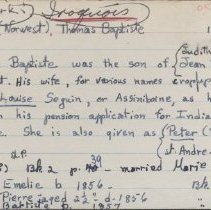 rk) Iroquois
(Norwest), Thomas Baptiste
Judith
Baptiste was the son of Jean
His wife, for various names
Louise Seguin, or Assiniboine, as h
his pension application for India
e. She is also given as Peter (
St. Andre
R.P.
39
) Bk 2 p. married Marie
Emelie b 1856. Bk
Pierre jaged 2½ d-1856
Baptiste b. 1857